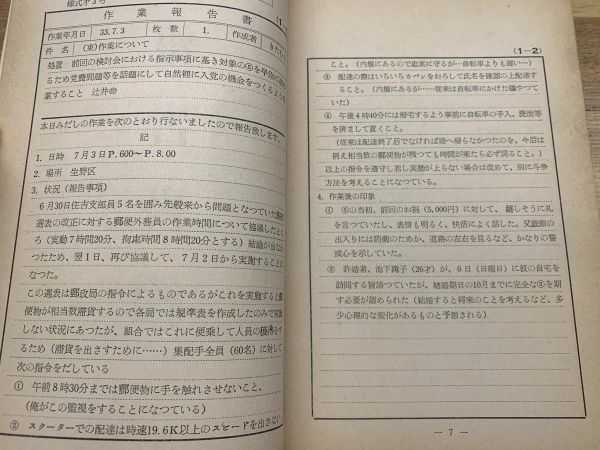 様式才3号
作業報告書
(1-
作業年月日 33.7.3 枚数 1. 作成者
件名 (東)作業について
処置 前回の検討会における指示事項に基き対象
るため党費問題等を話題にして自然裡に入党の機会をつくるよう
業すること 辻井
本日みだしの作業を次のとおり行ないましたので報告致します。
記
1. 日時 7月3日P.600〜P.8.00
2. 場所 生野区
3. 状況(報告事項)
6月30日住吉支部員5名を囲み先般来から問題となつていた
選表の改正に対する郵便外務員の作業時間について協議したとこ
ろ(実動7時間20分、拘束時間8時間20分とする)結論が出なか
つたため、翌1日、再び協議して、7月2日から実施することに
なつた。
この選表は郵政局の指令によるものであるがこれを実施すると郵
便物が相当数滞貨するので各局では規準表を作成したのみで実施
しない状況にあつたが、組合ではこれに便乗して人員の獲得をす
るため(滞貨を出さすために……)集配手全員(60名)に対して
次の指令をだしている
① 午前8時30分までは郵便物に手を触れさせないこと、
(俺がこの監視をすることになつている)
② スクーターでの配達は時速19.6K以上のスピードを出さない
(1-2)
こと。(内規にあるので忠実に守るが…自転車よりも遅い…)
③ 配達の際はいちいちカバンをおろして氏名を確認の上配達す
ること。(内規にあるが……従来は自転車にかけた儘でやつて
いた)
④ 午後4時40分には帰宅するよう事前に自転車の手入、洗面等
を済まして置くこと。
(従来は配達終了后でなければ局へ帰らなかつたのを、今后は
例え相当数の郵便物が残つても時間が来たら必ず戻ること。)
以上の指令を遵守し若し実動が上らない場合は改めて、別に斗争
方法を考えることになつている。
4. 作業後の印象
① の当初、前回のお祝(5,000円)に対して、嬉しそうに礼
を言つていたし、表情も明るく、快活によく話した。又旅館の
出入りには防衛のためか、道路の左右を見るなど、かなりの警
戒心を示していた。
② 許婚者、池下満子(26才)が、6日(日曜日)に彼の自宅を
訪問する旨語つていたが、結婚期日の10月までに完全なを期
す必要が認められた(結婚すると将来のことを考えるなど、多
少心理的な変化があるものと予想される)
— 7 —